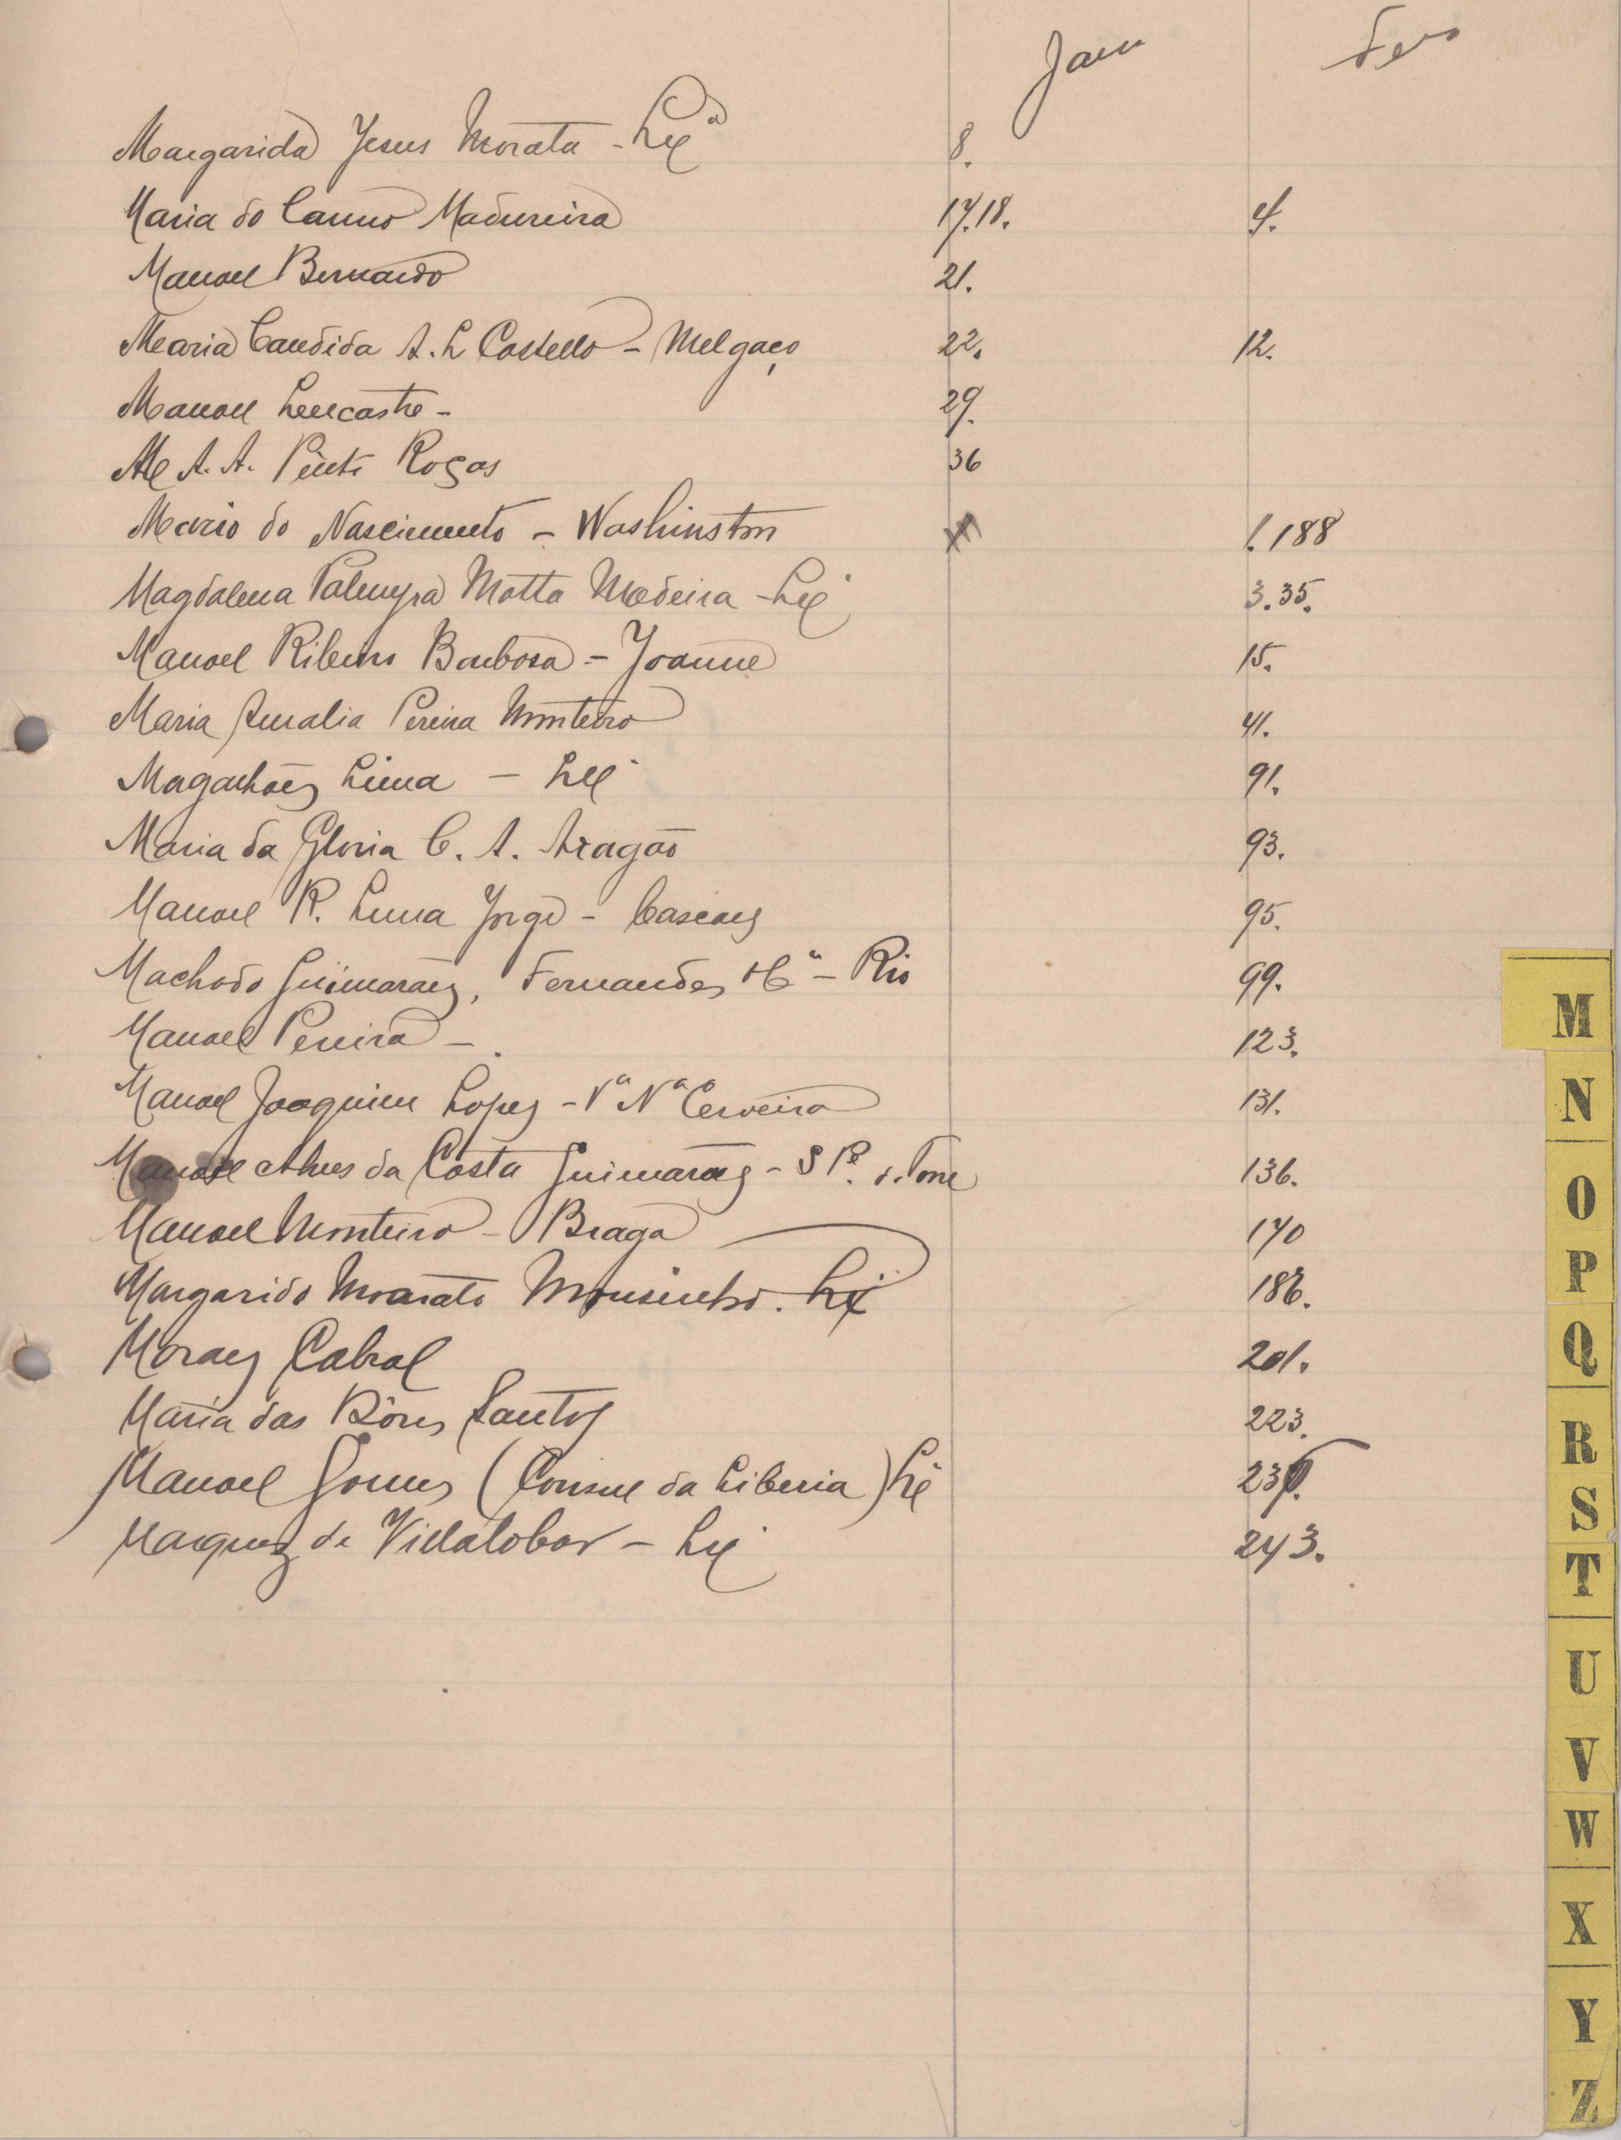 Jan Fev
Margarida Jesus Morata - Lxª 8.
Maria do Carmo Madureira 17.18. 4.
Manoel Bernardo 21.
Maria Candida A. L Castello - Melgaço 22. 12.
Manoel Lencastre - 29.
M A. A. Pinto Rosas 36
Mario do Nascimento - Washinston 1.188
Magdalena Palmyra Motta Madeira - Lxª 3.35.
Manoel Ribeiro Barbosa - Joanne 15.
Maria Amalia Pereira Monteiro 41.
Magalhães Lima - Lxª 91.
Maria da Gloria C. A. Aragão 93.
Manoel R. Lima Jorge - Cascaes 95.
Machado Guimarães, Fernandes & Cª - Rio 99.
Manoel Pereira - 123.
Manoel Joaquim Lopes - Vª Nª Cerveira 131.
Manoel Alves da Costa Guimarães - S P. d. Torre 136.
Manoel Monteiro - Braga 170
Margarido Morato Mousinho. Lx 186.
Moraes Cabral 201.
Maria das Dôres Santos 223.
Manoel Gomes (Consul da Liberia) Lx
Marquez de Villalobar - Lx 243.
M
N
O
P
Q
R
S
T
U
V
W
X
Y
Z